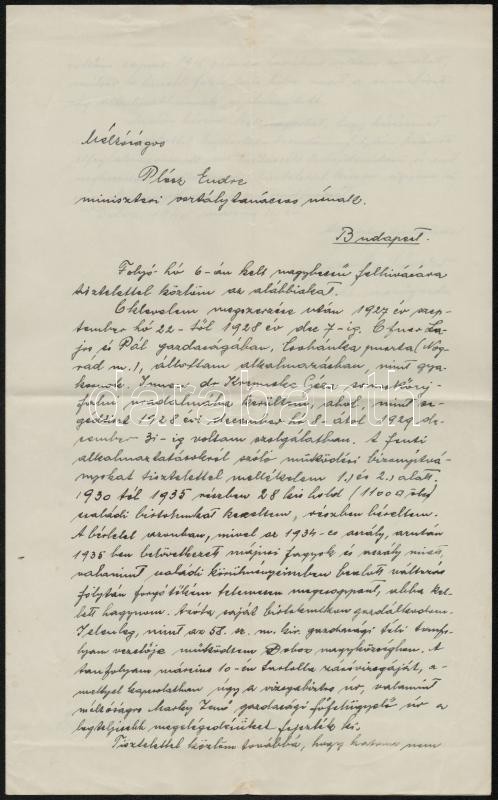 Méltóságos
Plósz Endre
miniszteri osztálytanácsos úrnak.
Budapest.
Folyó hó 6-án kelt nagybecsű felhívására
tisztelettel közlöm az alábbiakat.
Oklevelem megszerzése után 1927 év szep-
tember hó 22-től 1928 év dec 7-ig. Ofner La-
jos és Pál gazdaságában, puszta (Nóg-
rád m.), állottam alkalmazásban mint gya-
kornok. Innen dr Géza
uradalmába kerültem, ahol, mint se-
gédtiszt 1928 évi december hó 8-ától 1929 de-
cember 31-ig voltam szolgálatban. A fenti
alkalmaztatásokról szóló működési bizonyítvá-
nyokat tisztelettel mellékelem 1.) és 2.) alatt.
1930 tól 1935 részben 28 kis hold (1100 □ öles)
családi birtokunkat kezeltem, részben béreltem.
A bérletet azonban, mivel az 1934-es aszály, azután
1935 ben bekövetkezett májusi fagyok és aszály miatt,
valamint családi körülményeimben beállott változás
folytán forgótőkém tetemesen megcsappant, abba kel-
lett hagynom. Azóta saját birtokunkon gazdálkodom.
Jelenleg, mint az 58. sz. m. kir. gazdasági téli tanfo-
lyam vezetője működtem Doboz nagyközségben. A
tanfolyam március 10-én tartotta záróvizsgáját, a-
mellyel kapcsolatban úgy a vizsgabiztos úr, valamint
méltóságos Jenő gazdasági főfelügyelő úr a
legteljesebb megelégedésüket fejezték ki.
Tisztelettel közlöm továbbá, hogy katona nem
darabanth